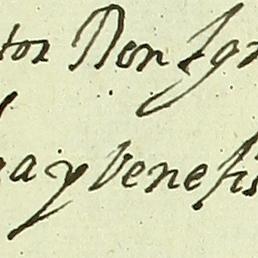 tor Don Ign
a y benefi